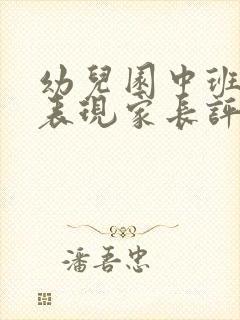 幼兒園中班
表現家長評
潘吾忠